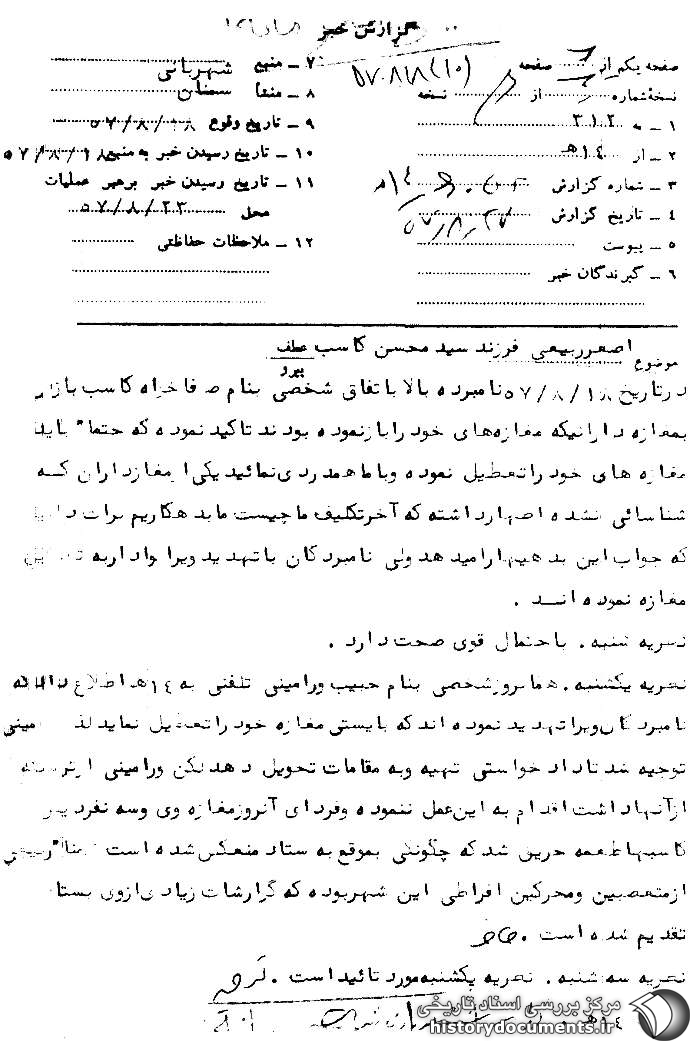 گزارش خبر
صفحه یکم از صفحه
نسخه شماره از نسخه
۱ ــ به ۳۱۲
۲ ــ از ۱۴ هـ
۳ ــ شماره گزارش
۴ ــ تاریخ گزارش ۵۷/۸/۲۷
۵ ــ پیوست
۶ ــ گیرندگان خبر
۷ ــ منبع شهربانی
۸ ــ منشأ سمنان
۹ ــ تاریخ وقوع ۵۷/۸/۱۸
۱۰ ــ تاریخ رسیدن خبر به منبع ۵۷/۸/۱۸
۱۱ ــ تاریخ رسیدن خبر برهبر عملیات
محل ۵۷/۸/۲۳
۱۲ ــ ملاحظات حفاظتی
موضوع اصغر ربیعی فرزند سید محسن کاسب عطف
پیرو
در تاریخ ۵۷/۸/۱۸ نامبرده بالا باتفاق شخصی بنام کاسب بازار
بمغازه دارانیکه مغازه‌های خود را باز نموده بودند تاکید نموده که حتما" باید
مغازه های خود را تعطیل نموده و با ما همدردی نمائید یکی از مغازداران که
شناسائی نشده اظهار داشته که آخر تکلیف ما چیست ما بدهکاریم برات داریم
که جواب این بدهیها را میدهد ولی نامبردگان با تهدید ویرا وادار به
مغازه نموده انـد .
نظریه شنبه . با احتمال قوی صحت دارد .
نظریه یکشنبه . همانروز شخصی بنام حبیب ورامینی تلفنی به ۱۴ هـ اطلاع داد که
نامبردگان ویرا تهدید نموده اند که بایستی مغازه خود را تعطیل نماید لذا ورامینی
توجیه شد تا دادخواستی تهیه و به مقامات تحویل دهد لکن ورامینی از ترسیکه
از آنها داشت اقدام به این عمل ننموده و فردای آنروز مغازه وی و سه نفر دیگر
کاسبها طعمه حریق شد که چگونگی بموقع به ستاد منعکس شده است ضمنا" ربیعی
از متعصبین و محرکین افراطی این شهر بوده که گزارشات زیادی از وی بستاد
تقدیم شده است .
نظریه سه شنبه . نظریه یکشنبه مورد تائید است .
مرکز بررسی اسناد تاریخی
historydocuments.ir